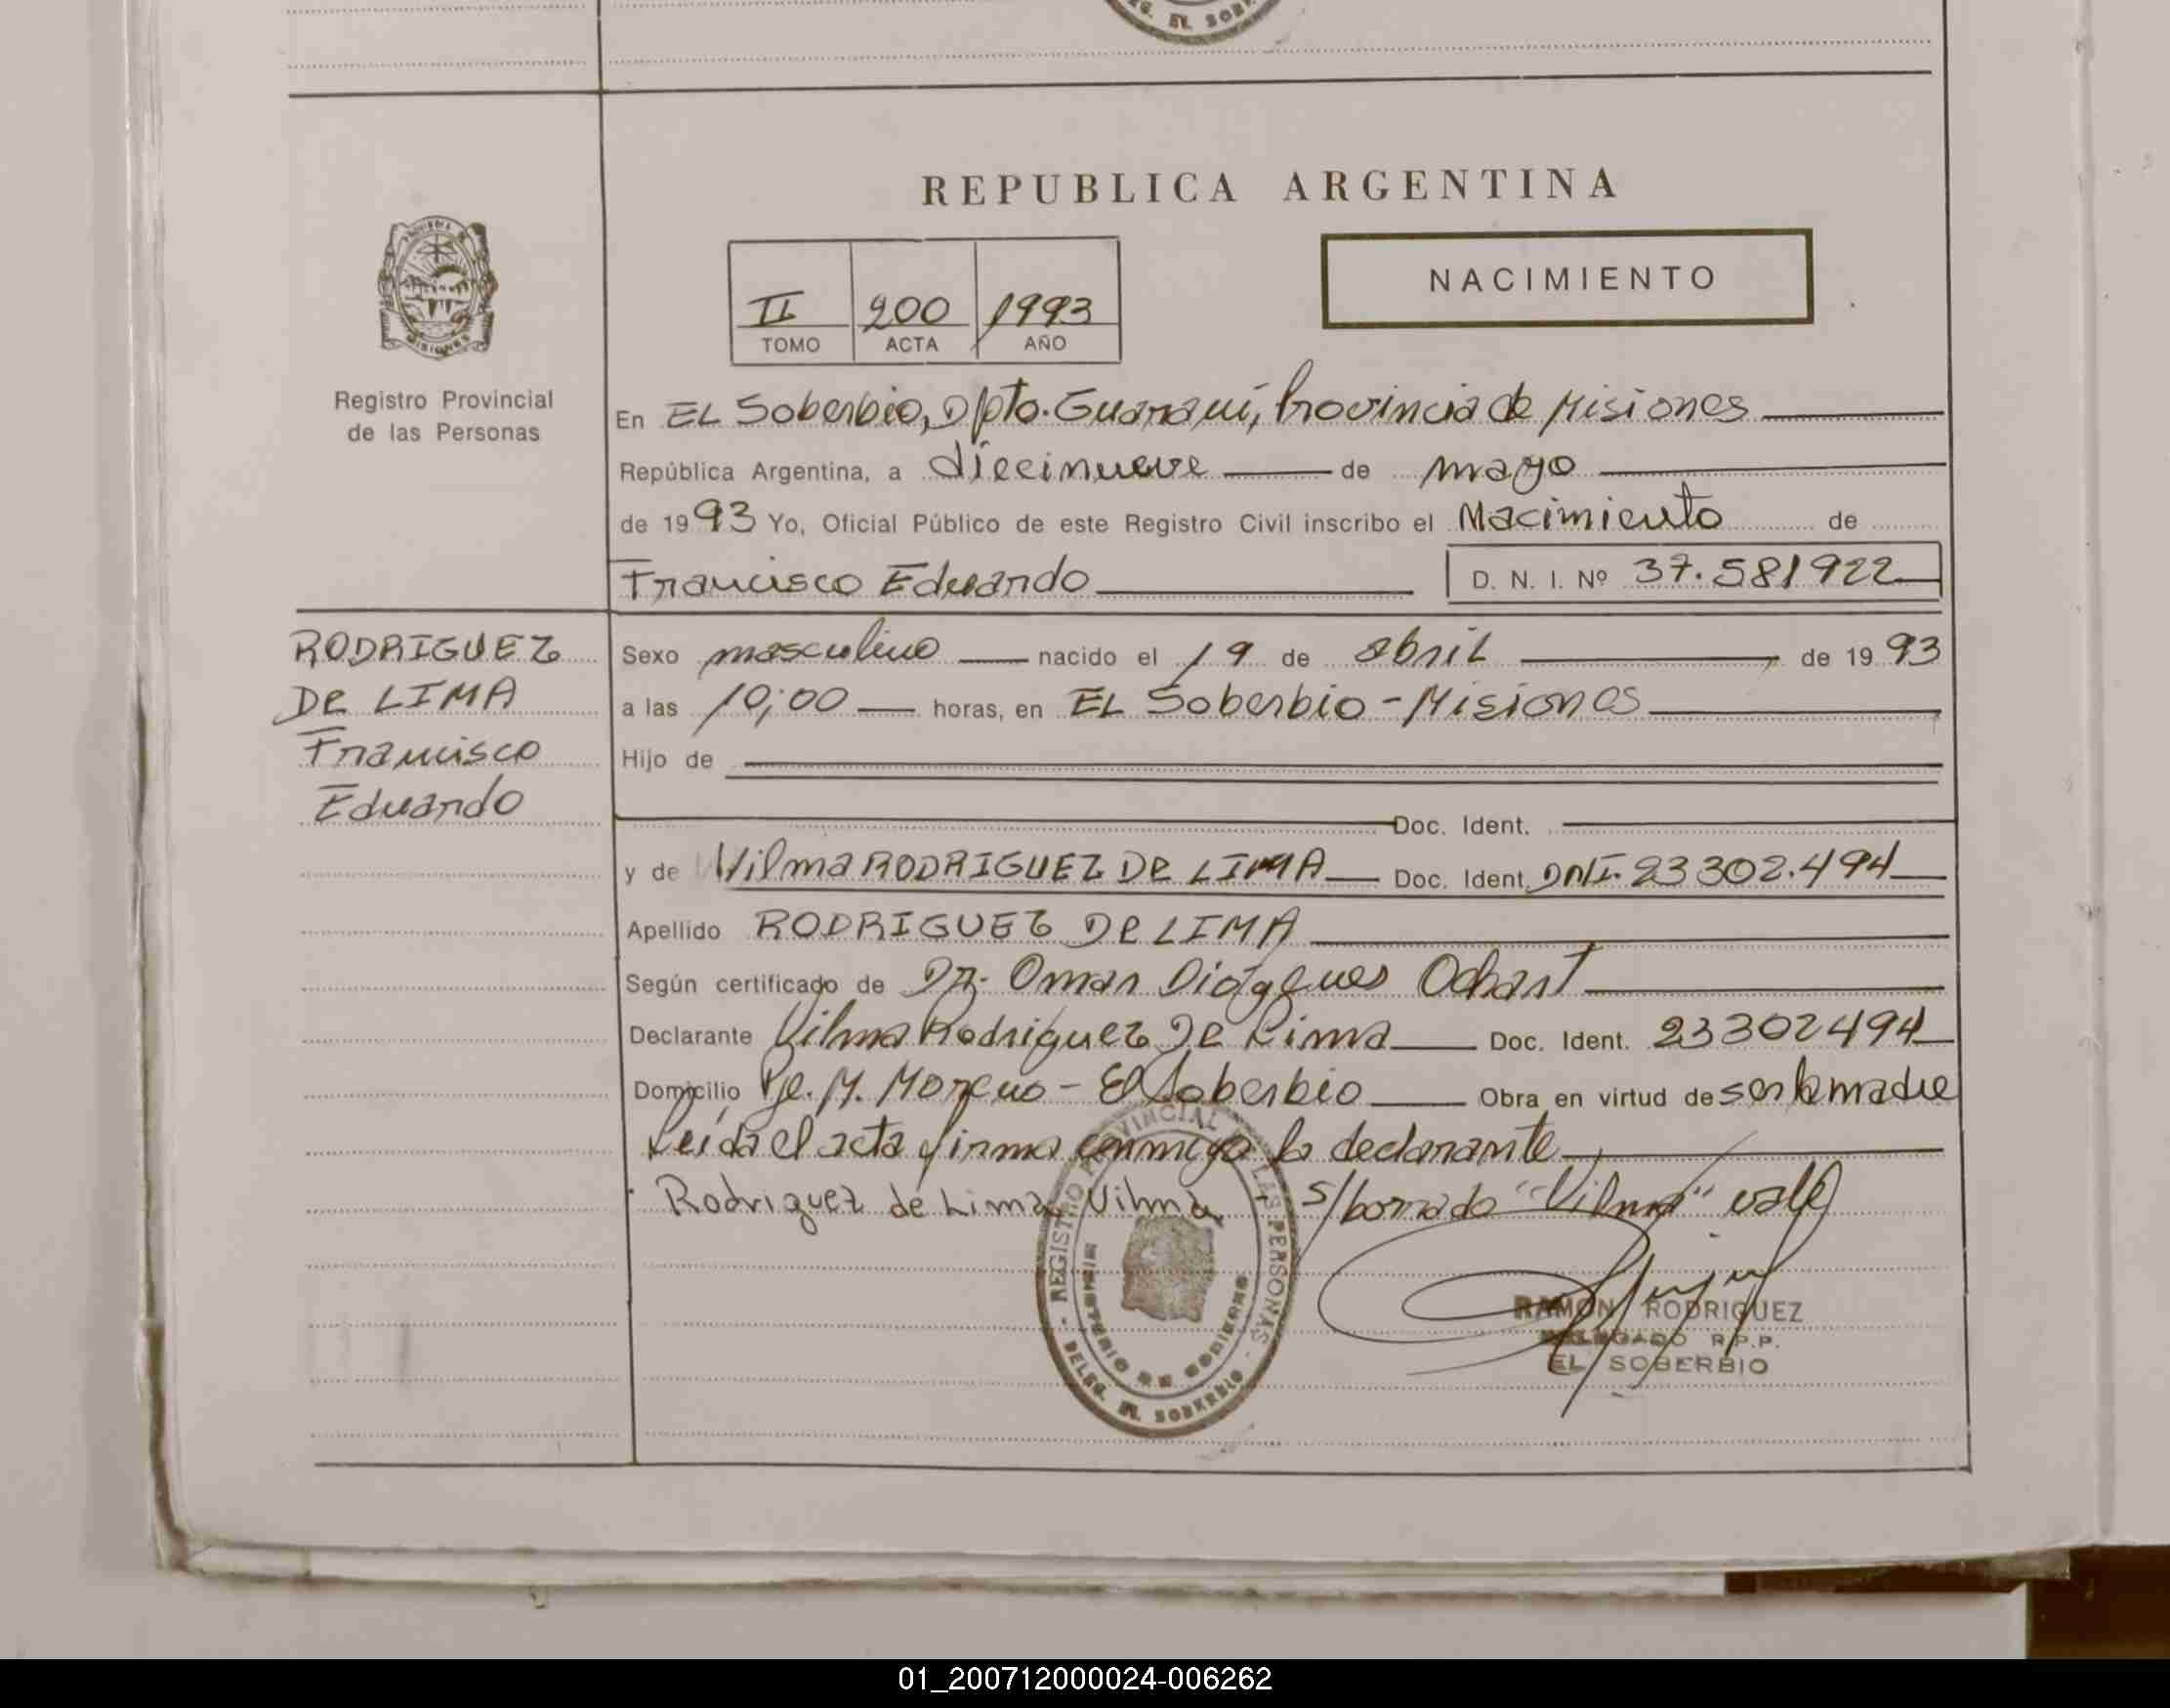 EG. EL SOBE
REPUBLICA ARGENTINA
NACIMIENTO
II 200 1993
TOMO ACTA AÑO
Registro Provincial
de las Personas
En EL Soberbio, Dpto. Guaraní, Provincia de Misiones
República Argentina, a diecinueve de mayo
de 1993 Yo, Oficial Público de este Registro Civil inscribo el Nacimiento de
Francisco Eduardo D. N. I. Nº 37.581922
RODRIGUEZ
DE LIMA
Francisco
Eduardo
Sexo masculino nacido el 19 de abril de 1993
a las 10;00 horas, en EL Soberbio - Misiones
Hijo de
Doc. Ident.
y de Vilma RODRIGUEZ DE LIMA Doc. Ident. DNI. 23302.494
Apellido RODRIGUEZ DE LIMA
Según certificado de Dr. Omar Diógenes
Declarante Vilma Rodriguez De Lima Doc. Ident. 23302494
Domicilio Pje. M. Moreno - El Soberbio Obra en virtud de ser la madre
Leída el acta firma conmigo la declarante
Rodriguez de Lima Vilma S/borrado "Vilma" vale
REGISTRO PROVINCIAL DE LAS PERSONAS
MINISTERIO DE GOBIERNO
DELEG. EL SOBERBIO
RAMON RODRIGUEZ
DELEGADO R.P.P.
EL SOBERBIO
01_200712000024-006262